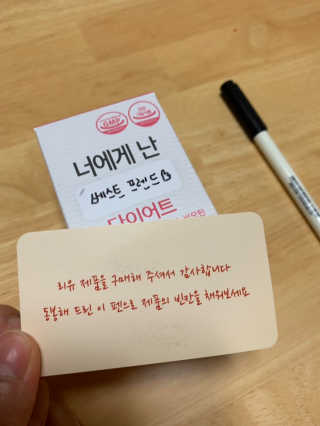 GMP
너에게 난
베스트 프렌드
다이어트
리유 제품을 구매해 주셔서 감사합니다
동봉해 드린 이 펜으로 제품의 빈칸을 채워보세요